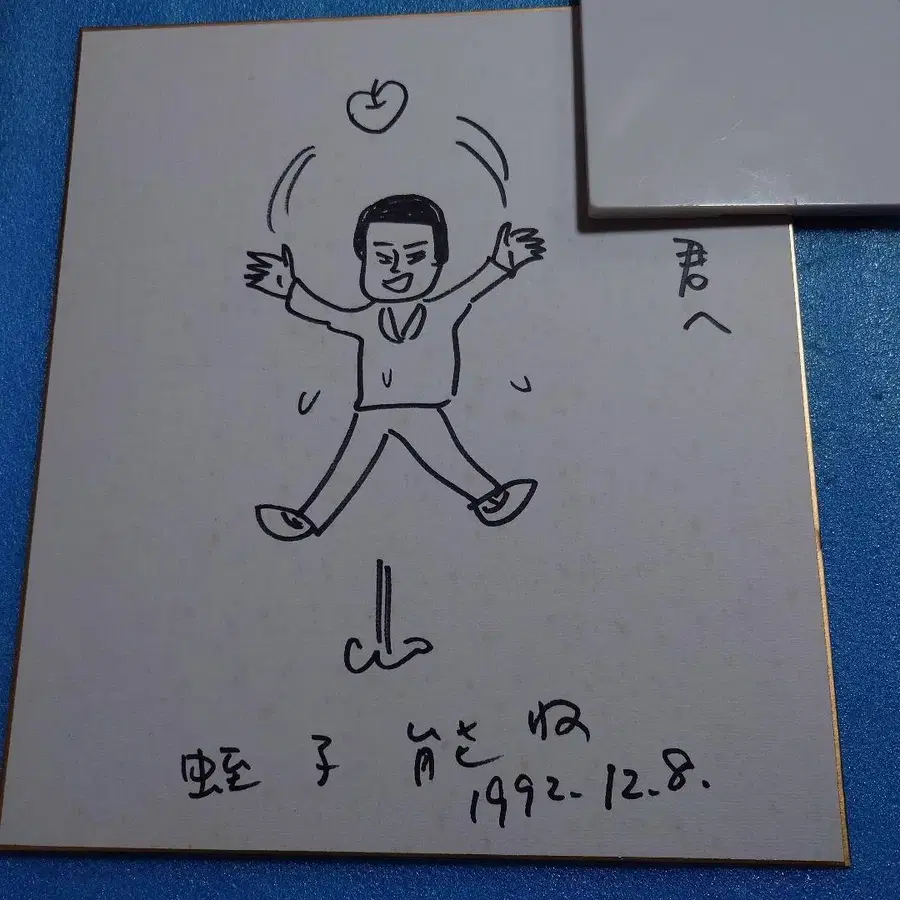 君へ
蛭子能収
1992.12.8.